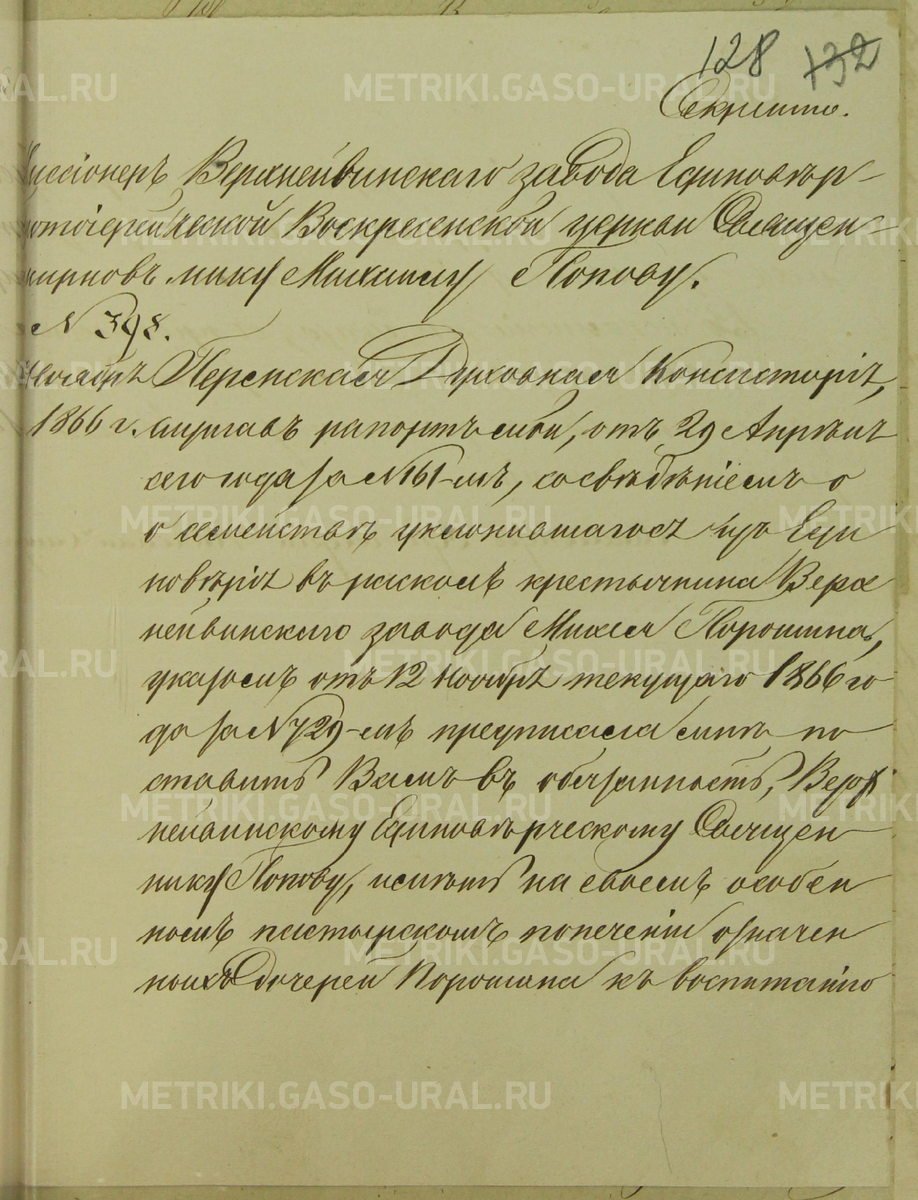 128 132
Секретно.
Миссіонеръ Верхнейвинскаго завода Единовѣр-
ческой Воскресенской церкви Священ-
нику Михаилу Попову.
№ 398.
Ноября Пермская Духовная Консисторія,
1866 г. слушавъ рапортъ мой, отъ 29 Апрѣля
сего года за № 161-мъ, со свѣдѣніемъ о
о семействѣ уклонившагося изъ Еди
новѣрія въ расколъ крестьянина Верх
нейвинскаго завода Михея Порошина,
указомъ отъ 12 Ноября текущаго 1866 го
да за № 729-мъ предписала мнѣ по
ставить Вамъ въ обязанность, Верх
нейвинскому Единовѣрческому Священ
нику Попову, имѣть на своемъ особен
номъ пастырскомъ попеченіи означен
ныхъ дочерей Порошина къ воспитанію
METRIKI.GASO-URAL.RU